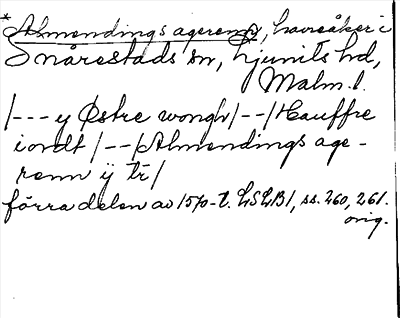 *Almendings agerenn, havreåker i
Snårestads sn, Ljunits hd,
Malm. l.
/--- y Østre wongh/--/Hauffre
iordt/--/Almendings age-
renn ÿ tr/
förra delen av 1570-t. LSLB1, ss. 260, 261.
orig.